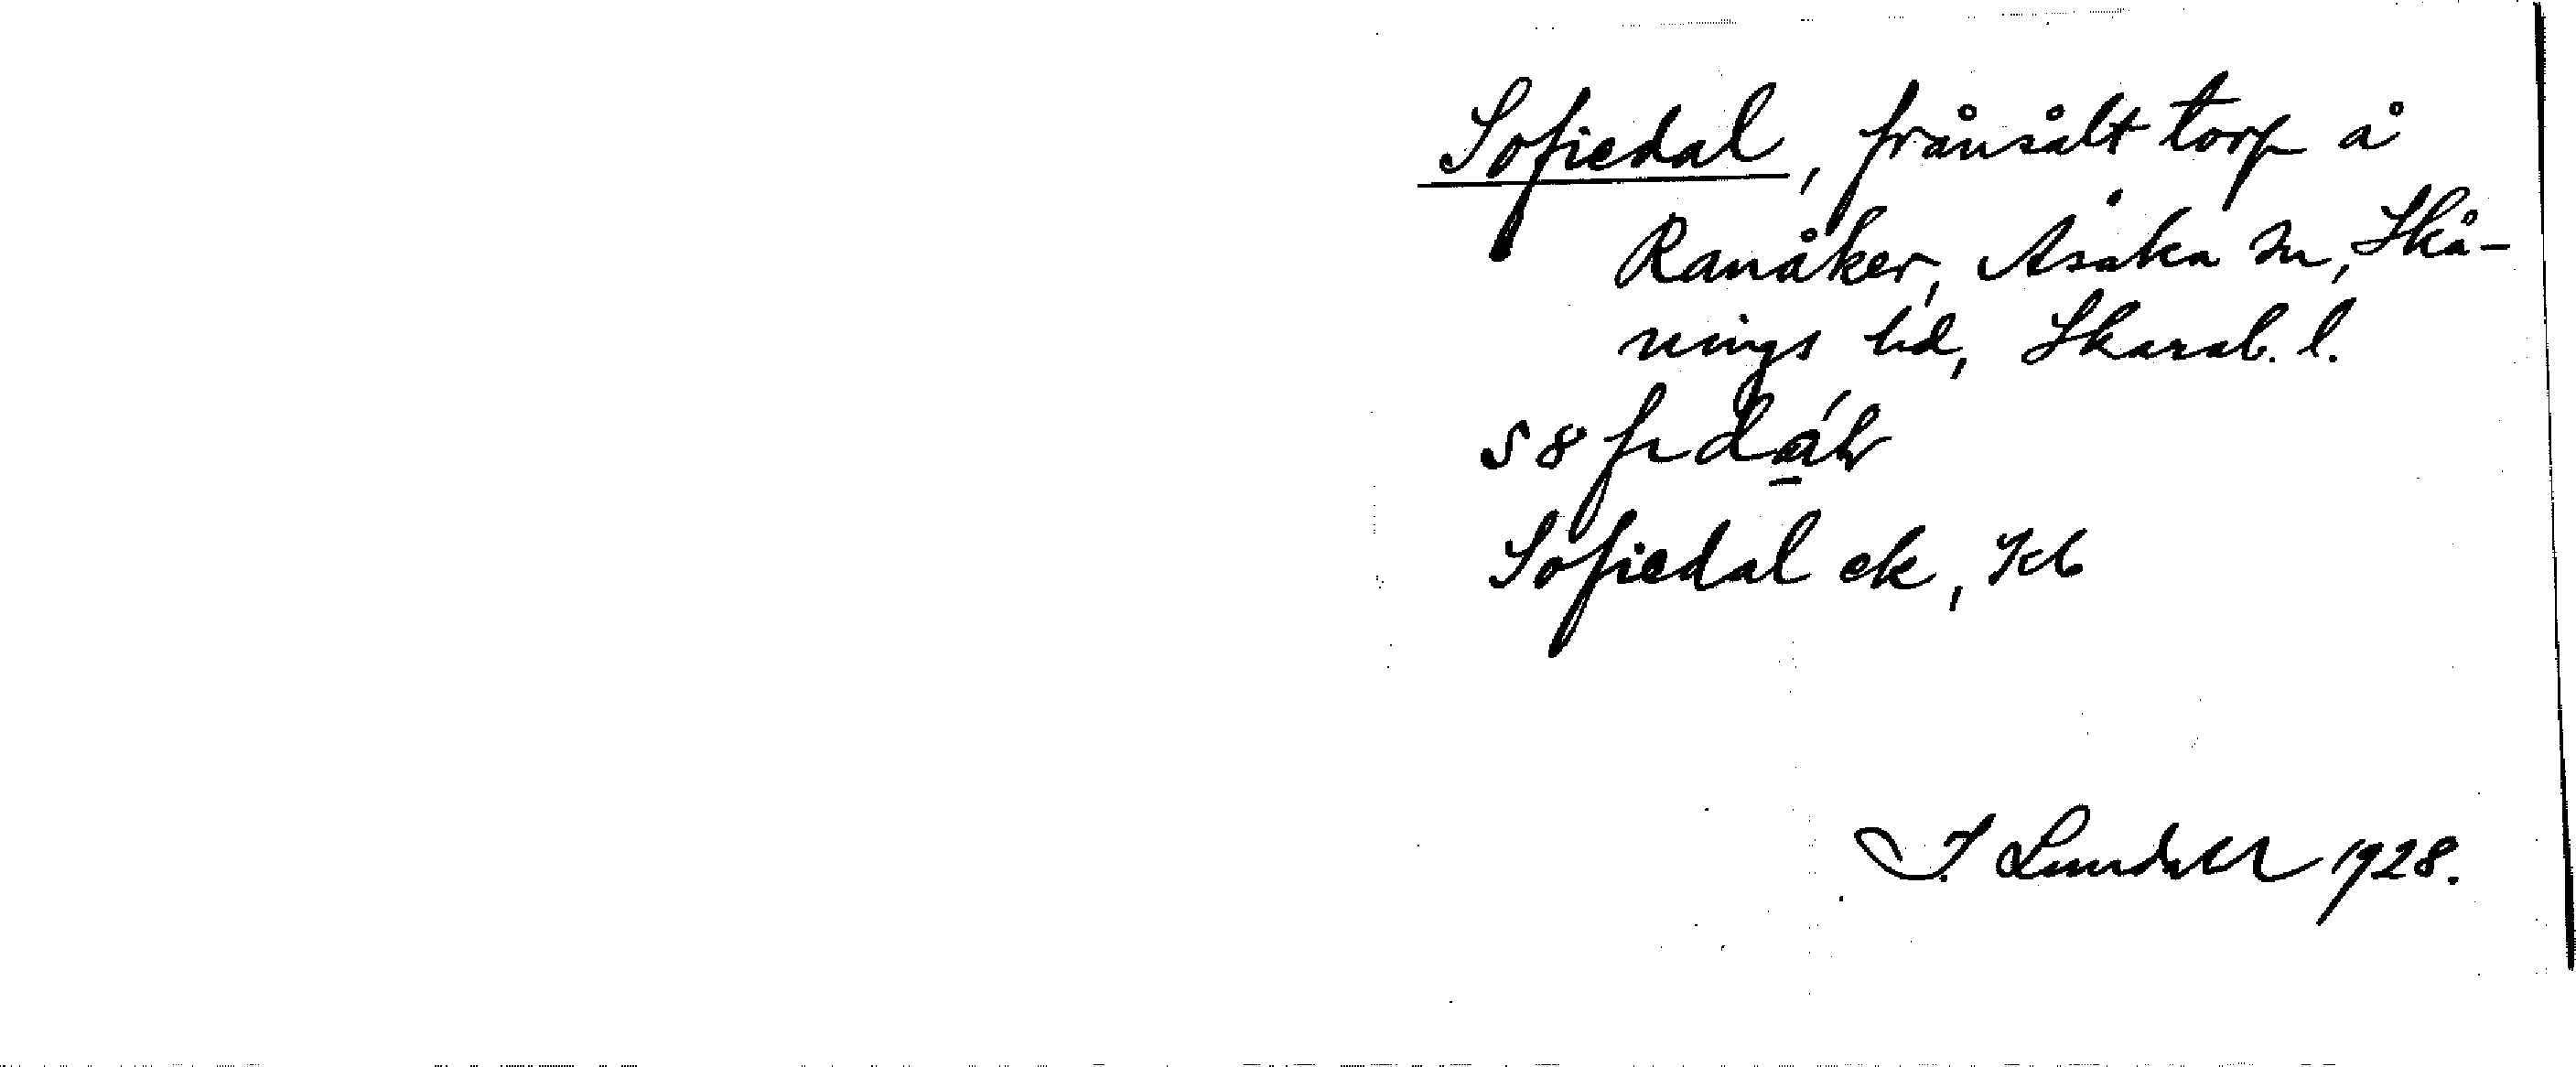 Sofiedal, frånsålt torp å
Ranåker, Åsaka sn, Skå-
nings hd, Skarab. l.
Sofiedal ek, Kb
I. Lundahl 1928.